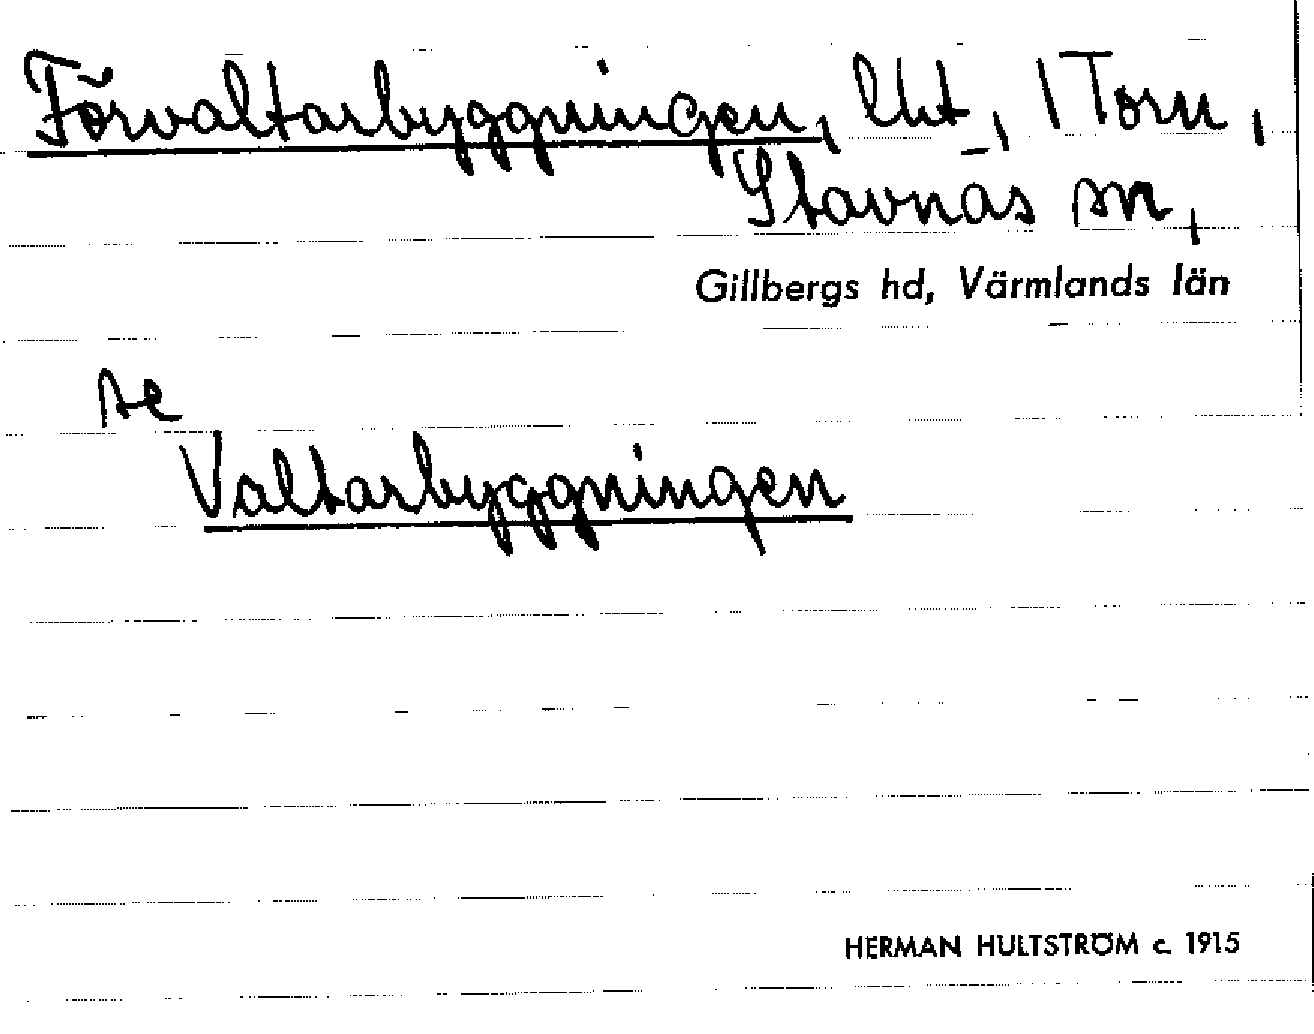 Förvaltarbyggningen, lht, 1 Torn,
Stavnäs sn,
Gillbergs hd, Värmlands län
se
Valtarbyggningen
HERMAN HULTSTRÖM c. 1915